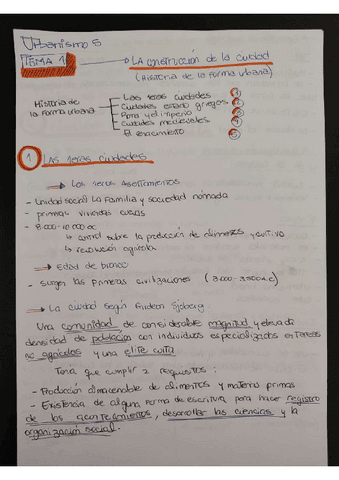 Urbanismo 5
TEMA 1 → LA CONSTRUCCIÓN DE LA CIUDAD
(HISTORIA DE LA FORMA URBANA)
Historia de la forma urbana
Las 1eras ciudades 1
Ciudades estado griegas 2
Roma y el imperio 3
Ciudades medievales 4
El renacimiento 5
1 LAS 1ERAS CIUDADES
→ LOS 1EROS ASENTAMIENTOS
- Unidad social La Familia y sociedad nómada
- primeras viviendas
- 8.000-10.000 ac
↳ control sobre la producción de alimentos y cultivo
↳ revolución agrícola
→ Edad de bronce
- surgen las primeras civilizaciones (3.000-3500 A.C)
→ La ciudad según Gideon Sjoberg
Una comunidad de considerable magnitud y elevada
densidad de población con individuos especializados en tareas
no agrícolas y una elite culta
Tenía que cumplir 2 requisitos:
- Producción almacenable de alimentos y materias primas
- Existencia de alguna forma de escritura para hacer registro
de los acontecimientos, desarrollar las ciencias y la
organización social.